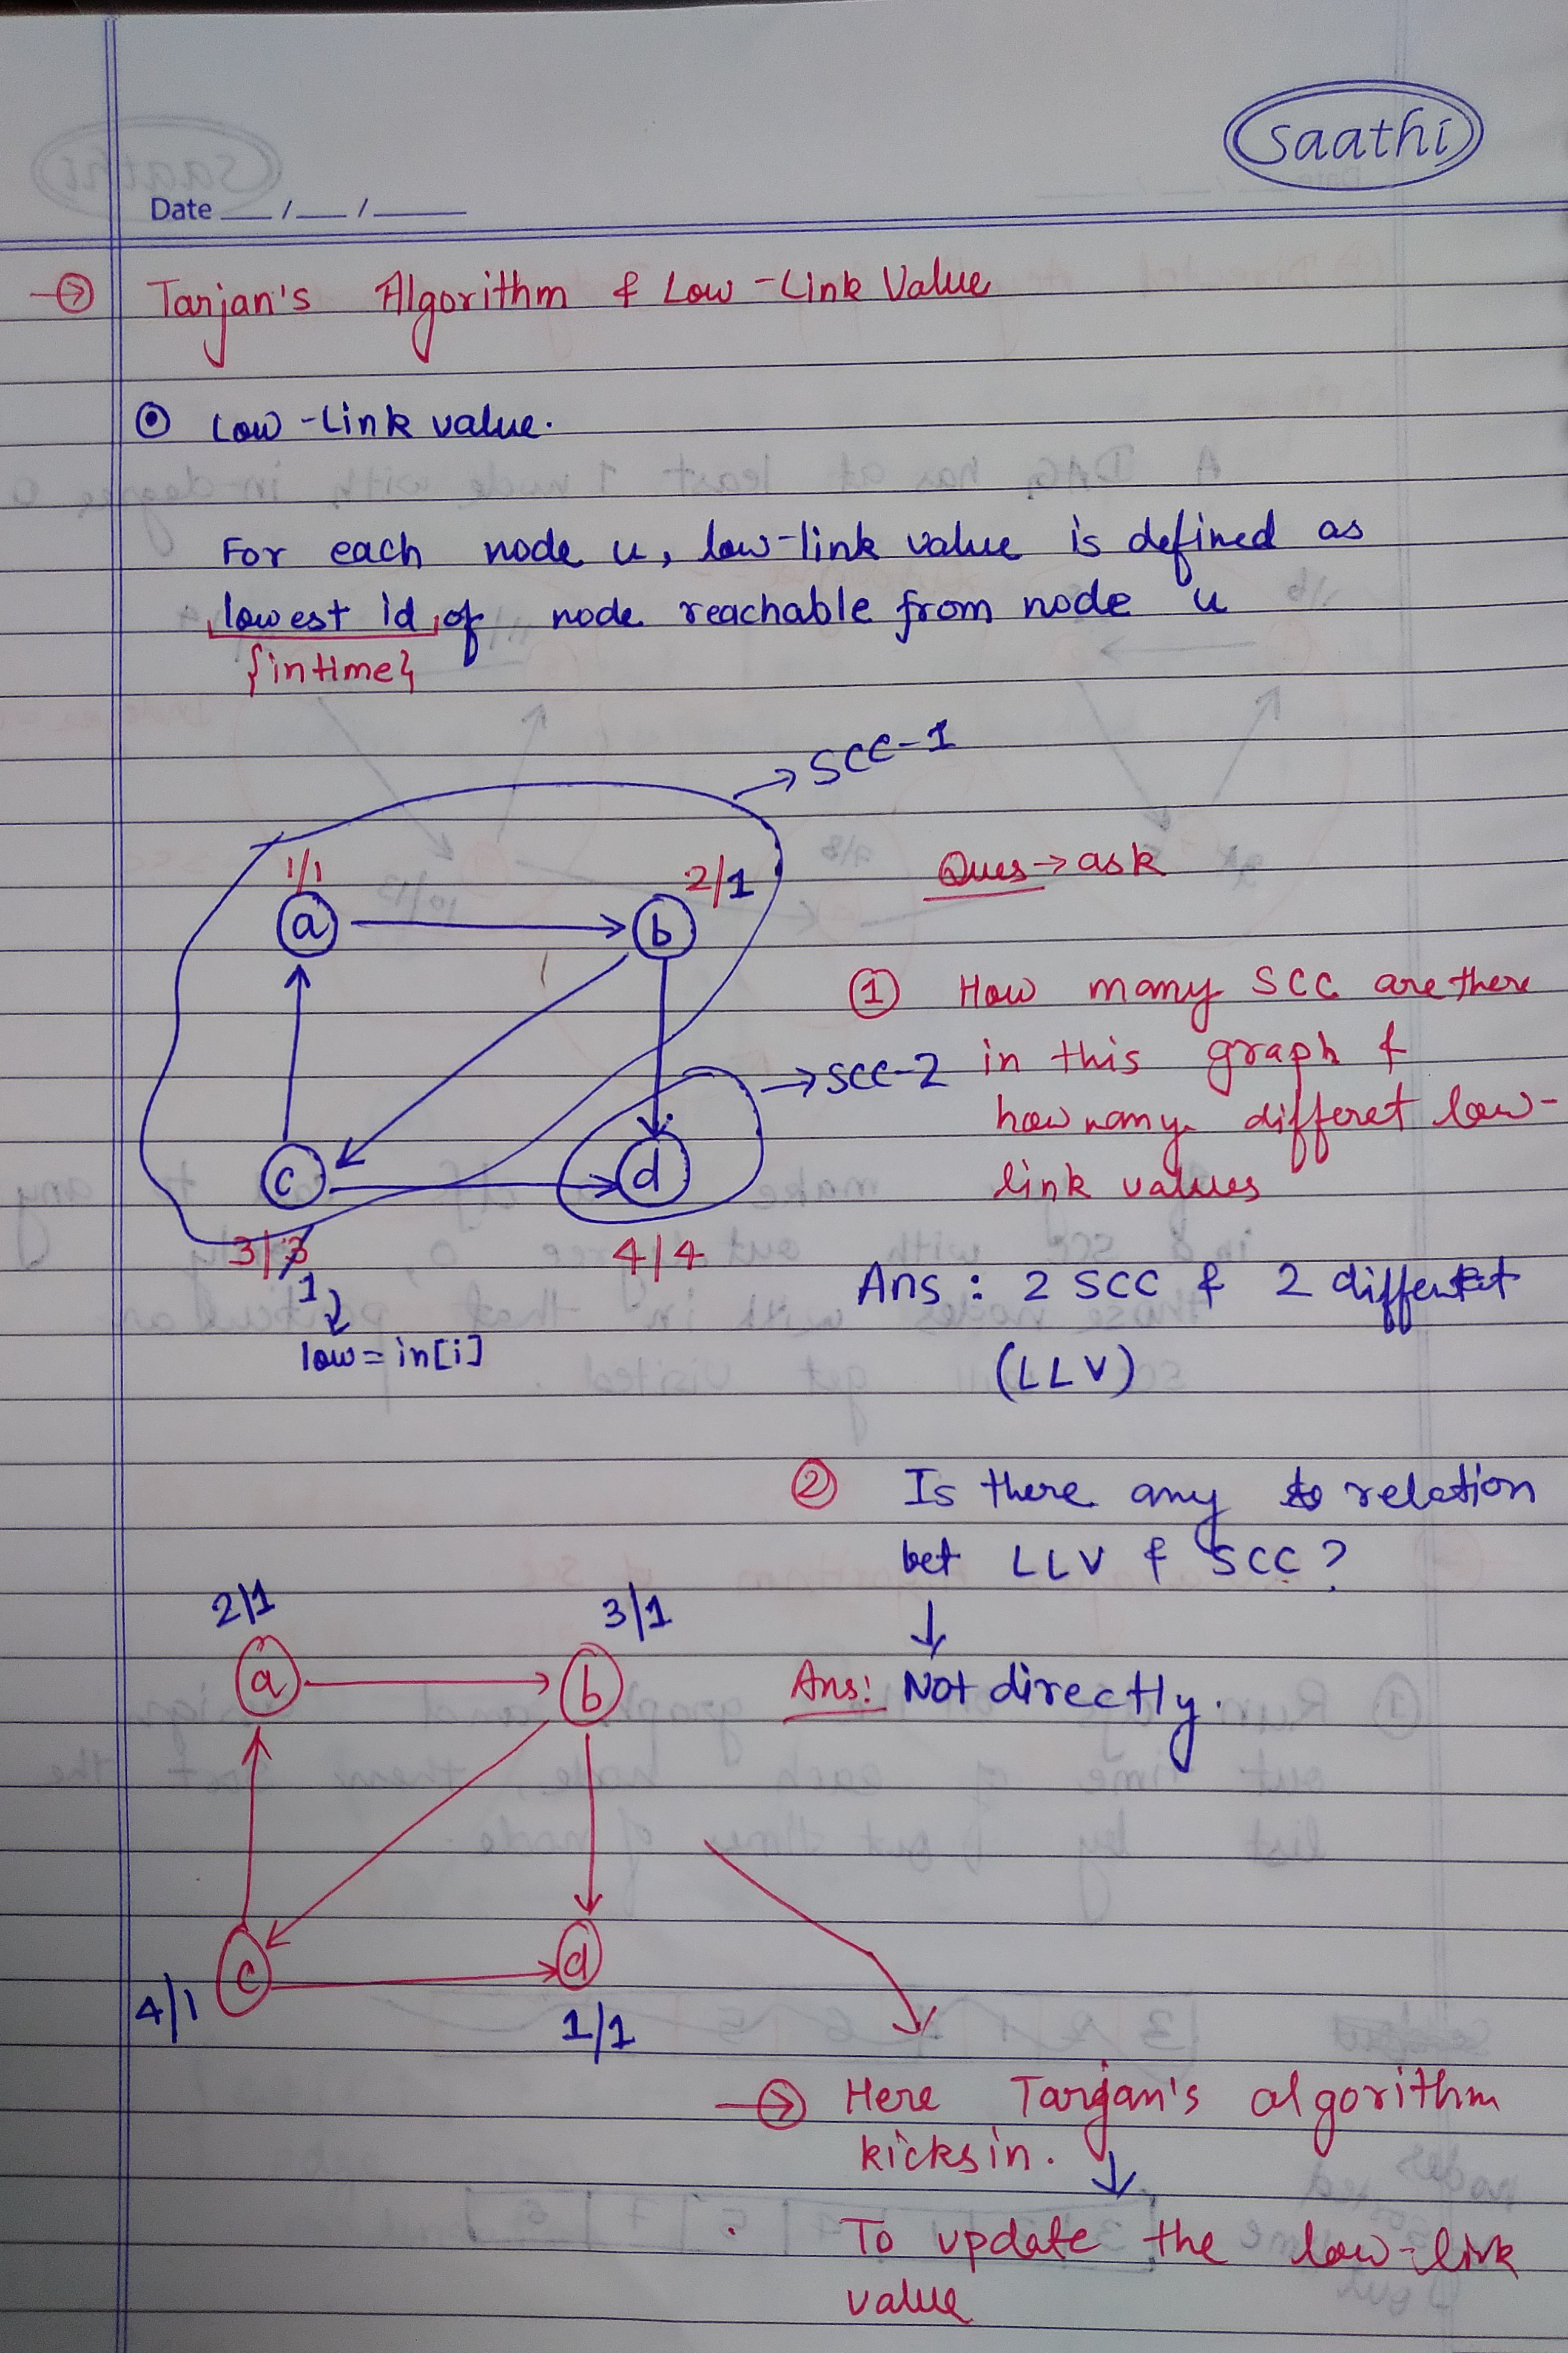 saathi
Date __/__/____
Tarjan's Algorithm & Low-Link Value
Low-Link value.
For each node u, low-link value is defined as
lowest id of node reachable from node u
{intime}
SCC-1
1/1
2/1
Ques → ask
a
b
① How many SCC are there
in this graph &
SCC-2
how many differet low-
link values
c
d
3/3
4/4
1
low = in[i]
Ans : 2 SCC & 2 different
(LLV)
② Is there any relation
bet LLV & SCC ?
2/1
3/1
a
b
Ans: Not directly.
c
d
4/1
1/1
Here Tarjan's algorithm
kicks in.
To update the low-link
value